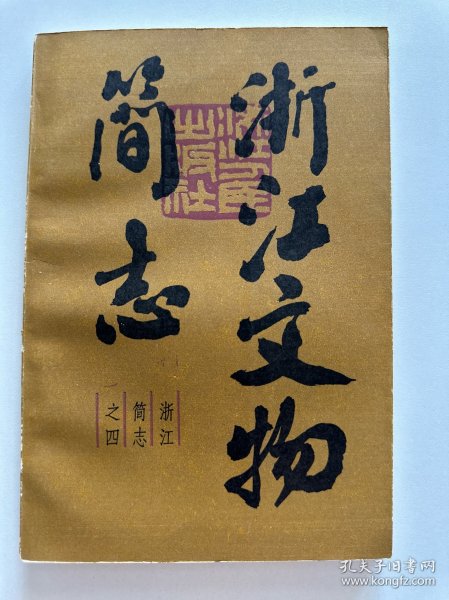 浙江文物
简志
浙江人民
出版社
浙江
简志
之四
孔夫子旧书网
www.kongfz.com